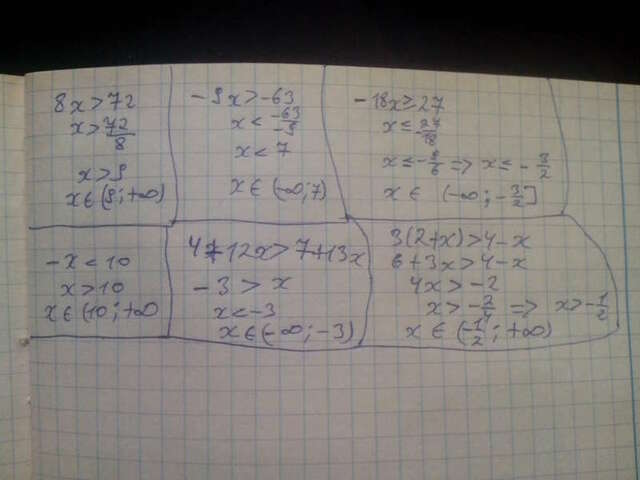 8x>72
x>72/8
x>9
x∈(9;+∞)
-9x>-63
x<-63/-9
x<7
x∈(-∞;7)
-18x≥27
x≤27/-18
x≤-9/6 => x≤-3/2
x∈ (-∞;-3/2]
-x<10
x>10
x∈(10;+∞
4+12x>7+13x
-3>x
x<-3
x∈(-∞;-3)
3(2+x)>4-x
6+3x>4-x
4x>-2
x>-2/4 => x>-1/2
x∈(-1/2;+∞)